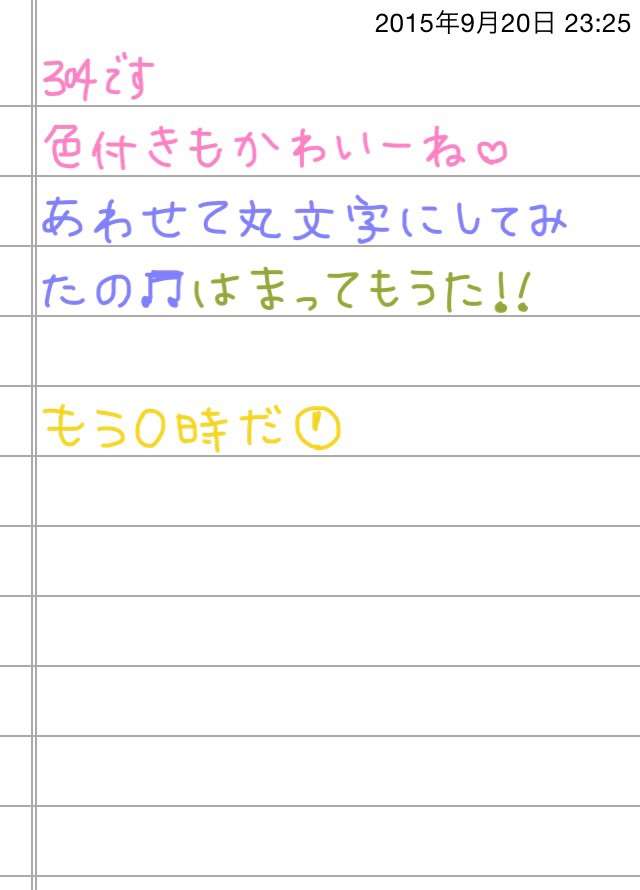 2015年9月20日 23:25
304です
色付きもかわいーね♡
あわせて丸文字にしてみ
たの♫はまってもうた!!
もう0時だ🕛